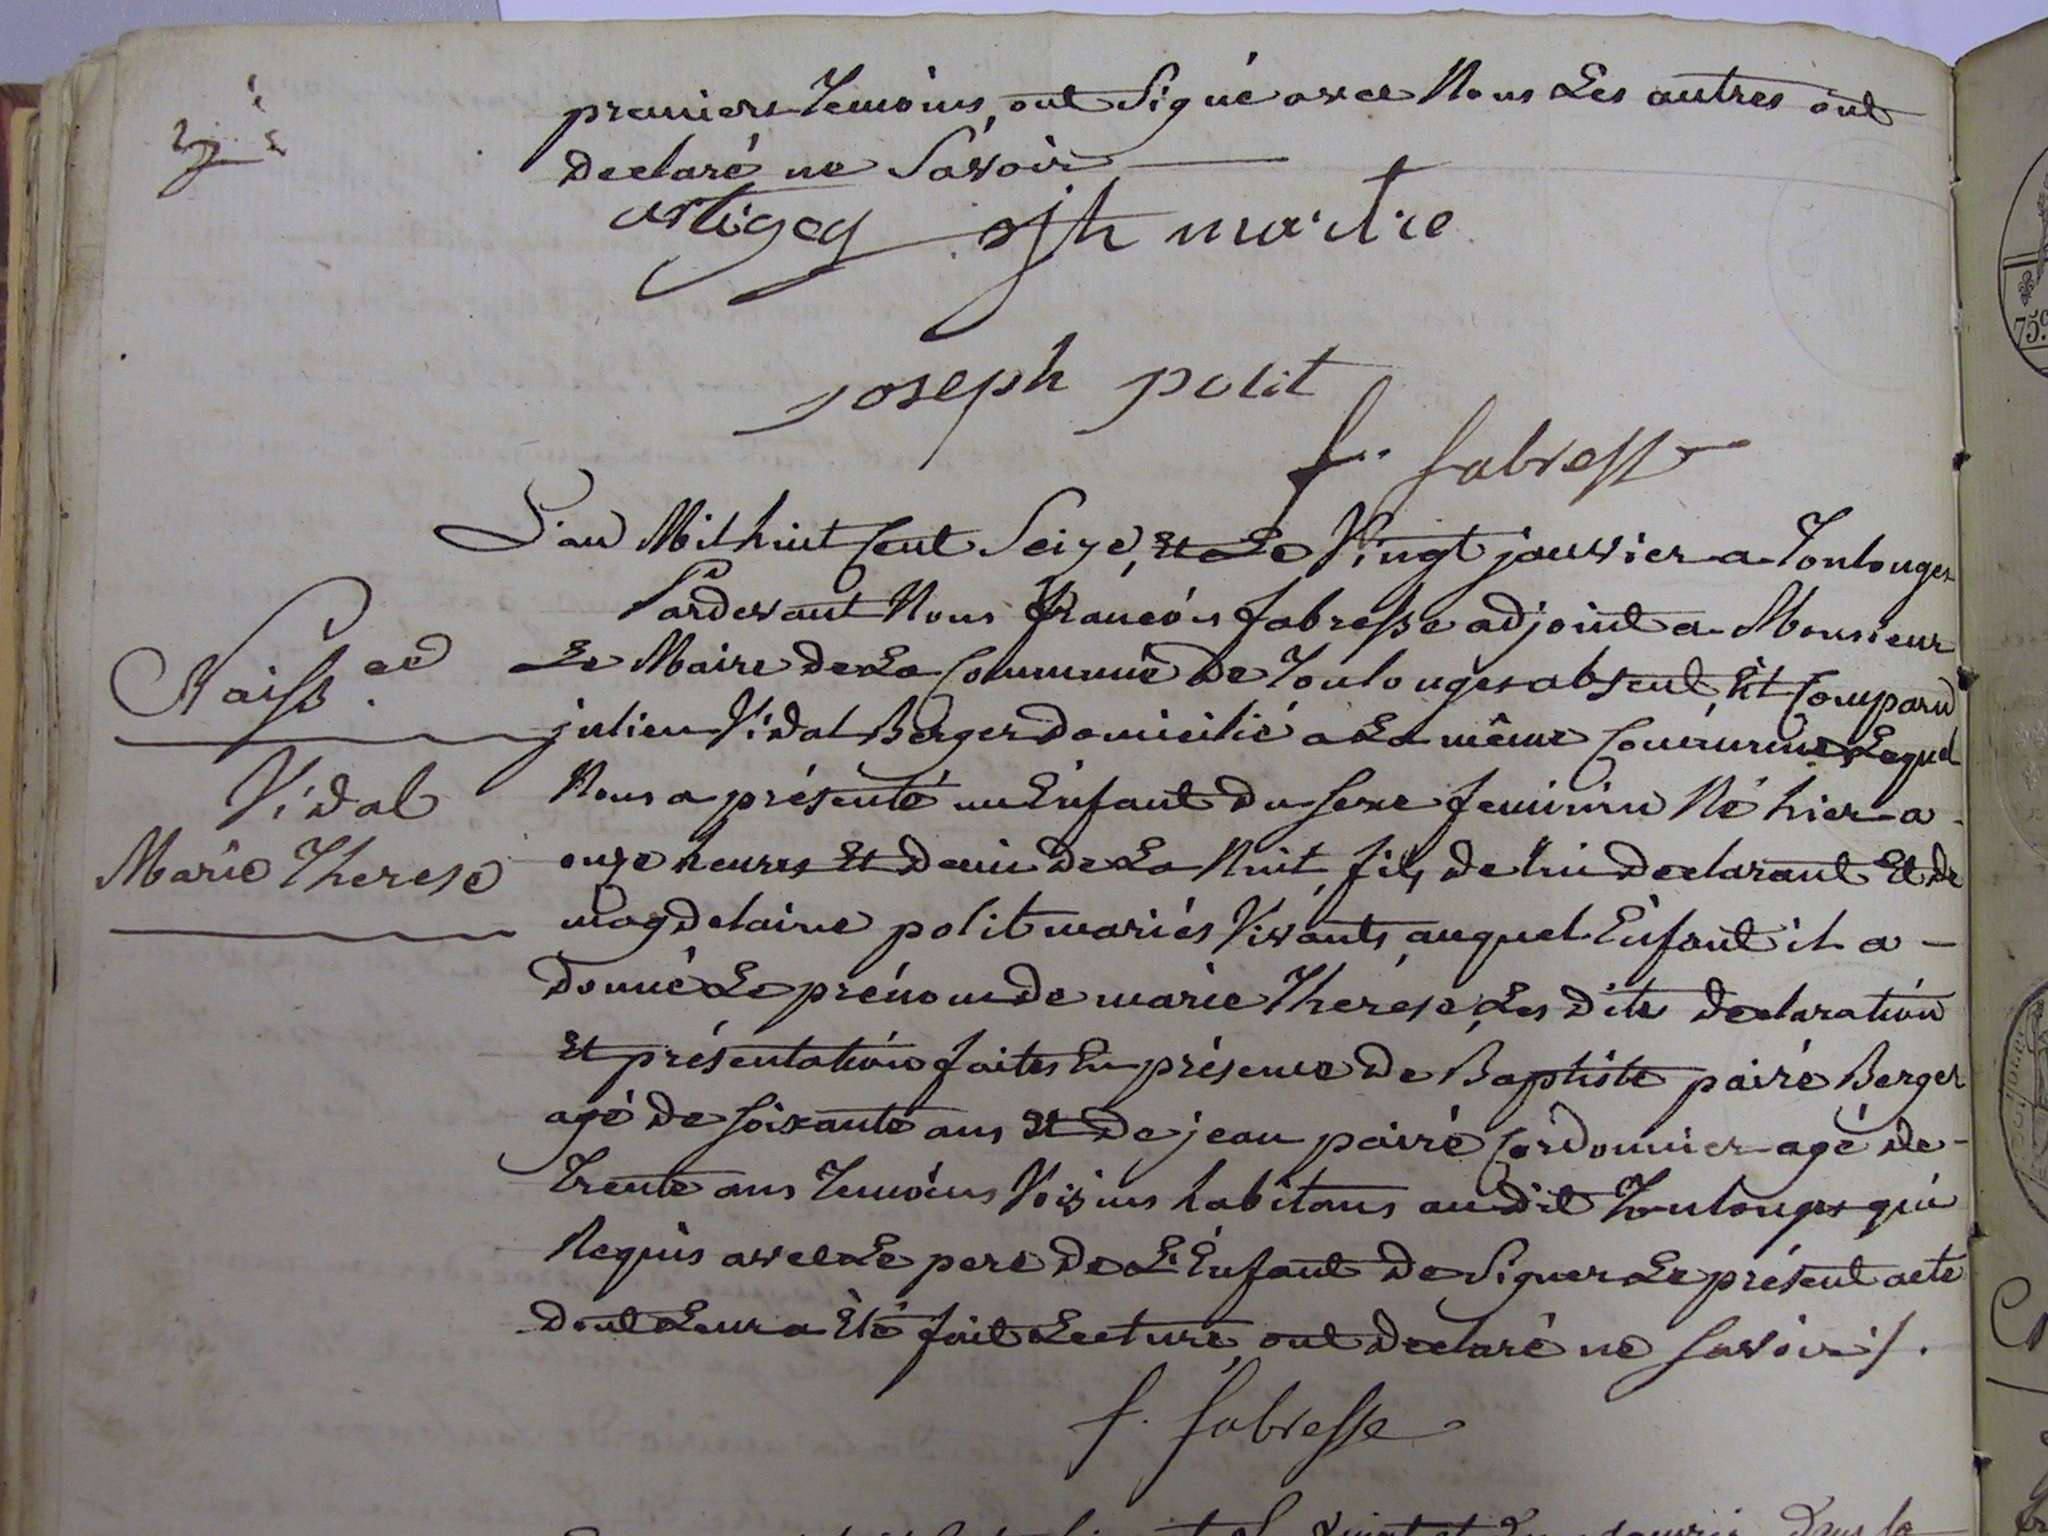 premiers temoins, ont Signé avec Nous Les autres ont
declaré ne Savoir
artigeq jph martre
joseph polit
f. fabresse
L'an Mil huit Cent Seize, Et Le Vingt janvier a Toulouges
Pardevant Nous françois fabresse adjoint a Monsieur
Le Maire de La Commune de Toulouges absent, Est Comparu
julien Vidal Berger domicilié a La même Commune Lequel
Nous a présenté un Enfant du sexe feminin Né hier a
onze heures Et demi de La Nuit, fils de lui declarant Et de
magdelaine polit mariés Vivants, auquel Enfant il a
donné Le prénom de marie Therese, Les dite declaration
Et présentation faites En présence de Baptiste pairé Berger
agé de soixante ans Et de jean pairé Cordonnier agé de
trente ans temoins Voisins habitans au dit Toulouges qui
Requis avec Le pere de L'Enfant de Signer Le présent acte
dont Leur a Eté fait Lecture, ont declaré ne savoir /.
f. fabresse
Naiss.ce
Vidal
Marie Therese
75c.